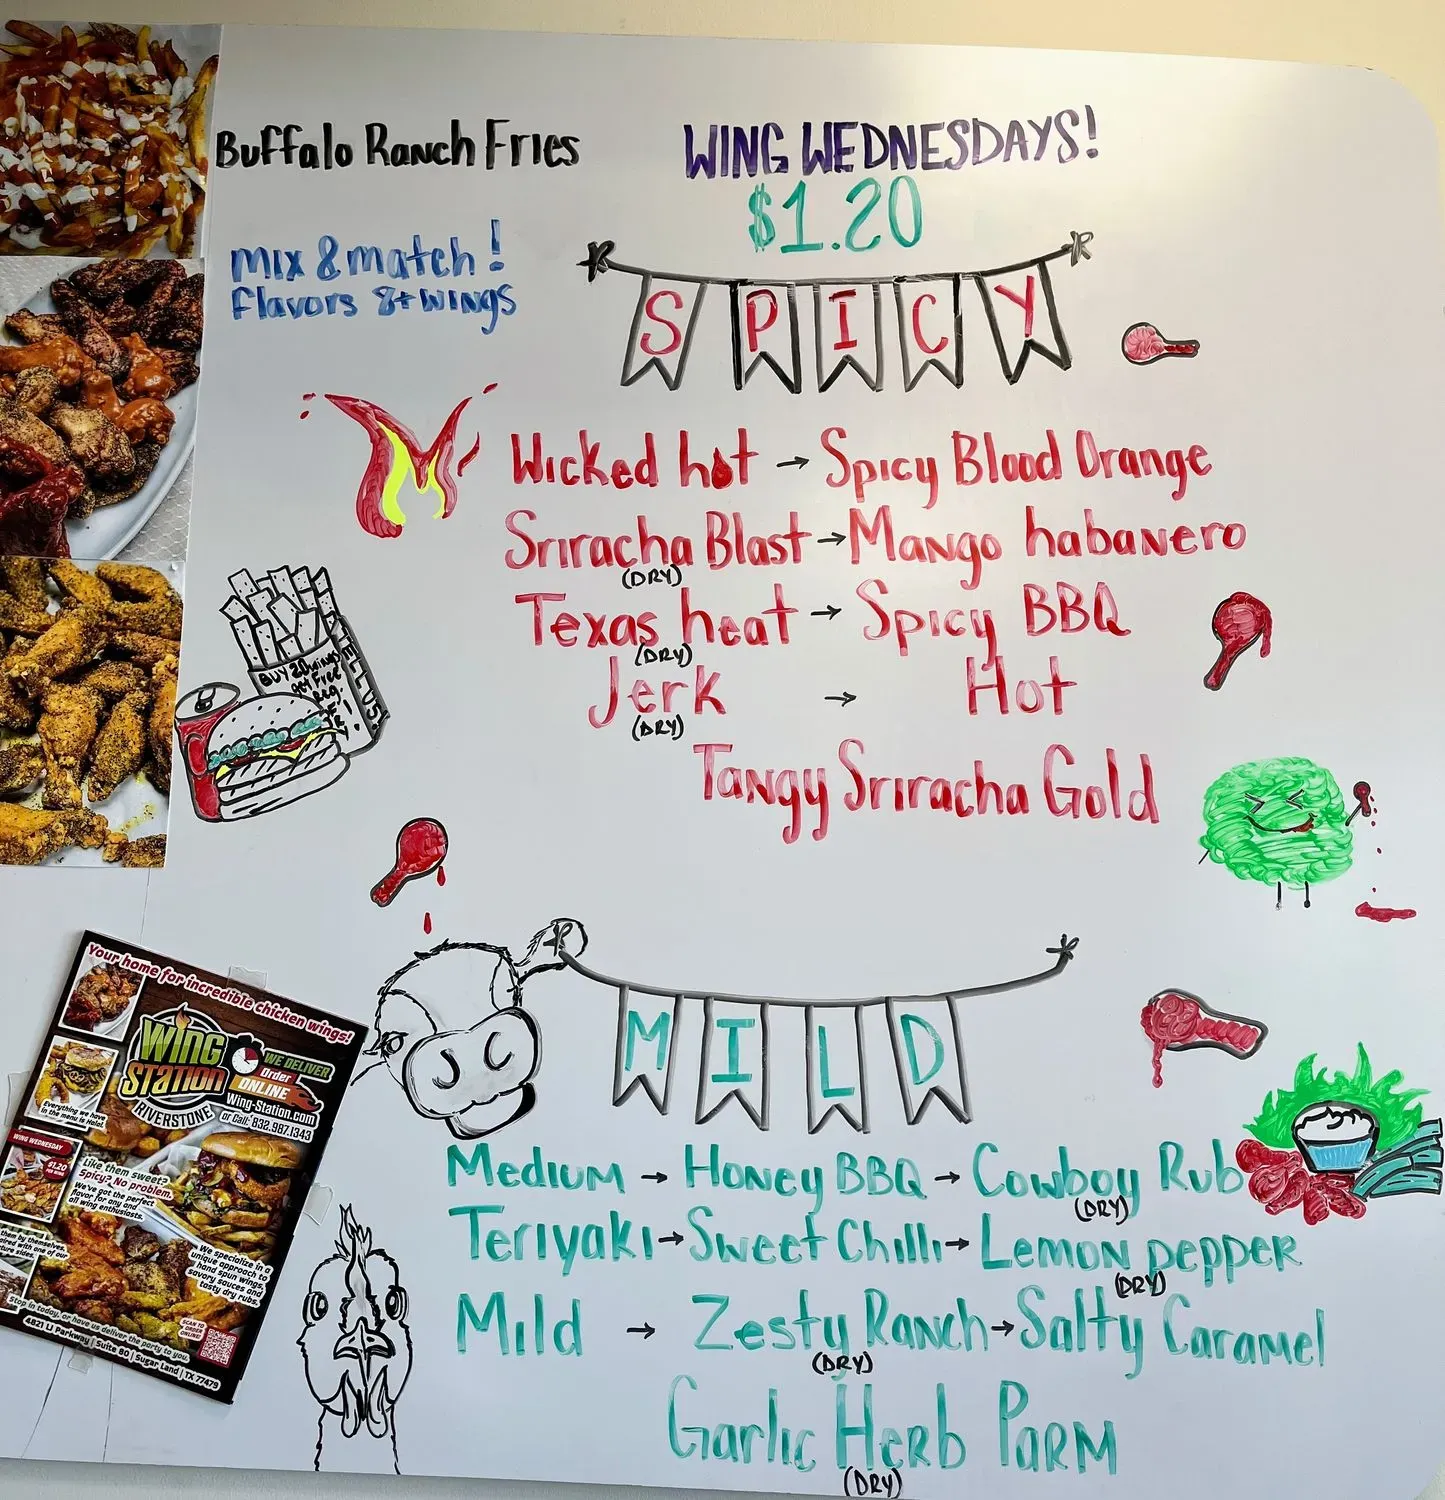 Buffalo Ranch Fries
WING WEDNESDAYS!
$1.20
mix & match!
flavors 8+ wings
SPICY
Wicked hot → Spicy Blood Orange
Sriracha Blast → Mango habanero
(DRY)
Texas heat → Spicy BBQ
(DRY)
Jerk → Hot
(DRY)
Tangy Sriracha Gold
BUY 20 wings
get Free
Reg.
MILD
Medium → Honey BBQ → Cowboy Rub
(DRY)
Teriyaki → Sweet Chilli → Lemon pepper
(DRY)
Mild → Zesty Ranch → Salty Caramel
(DRY)
Garlic Herb Parm
(DRY)
Your home for incredible chicken wings!
WING
STATION
RIVERSTONE
WE DELIVER
Order
ONLINE
Wing-Station.com
or Call: 832.987.1343
Everything we have
in the menu is Halal.
WING WEDNESDAY
$1.20
Like them sweet?
Spicy? No problem.
We've got the perfect
flavor for any and
all wing enthusiasts.
them by themselves,
with one of our
sides.
We specialize in a
unique approach to
hand spun wings,
savory sauces and
tasty dry rubs.
Stop in today, or have us deliver the party to you.
SCAN TO
ORDER
ONLINE!
4821 LJ Parkway | Suite 80 | Sugar Land | TX 77479